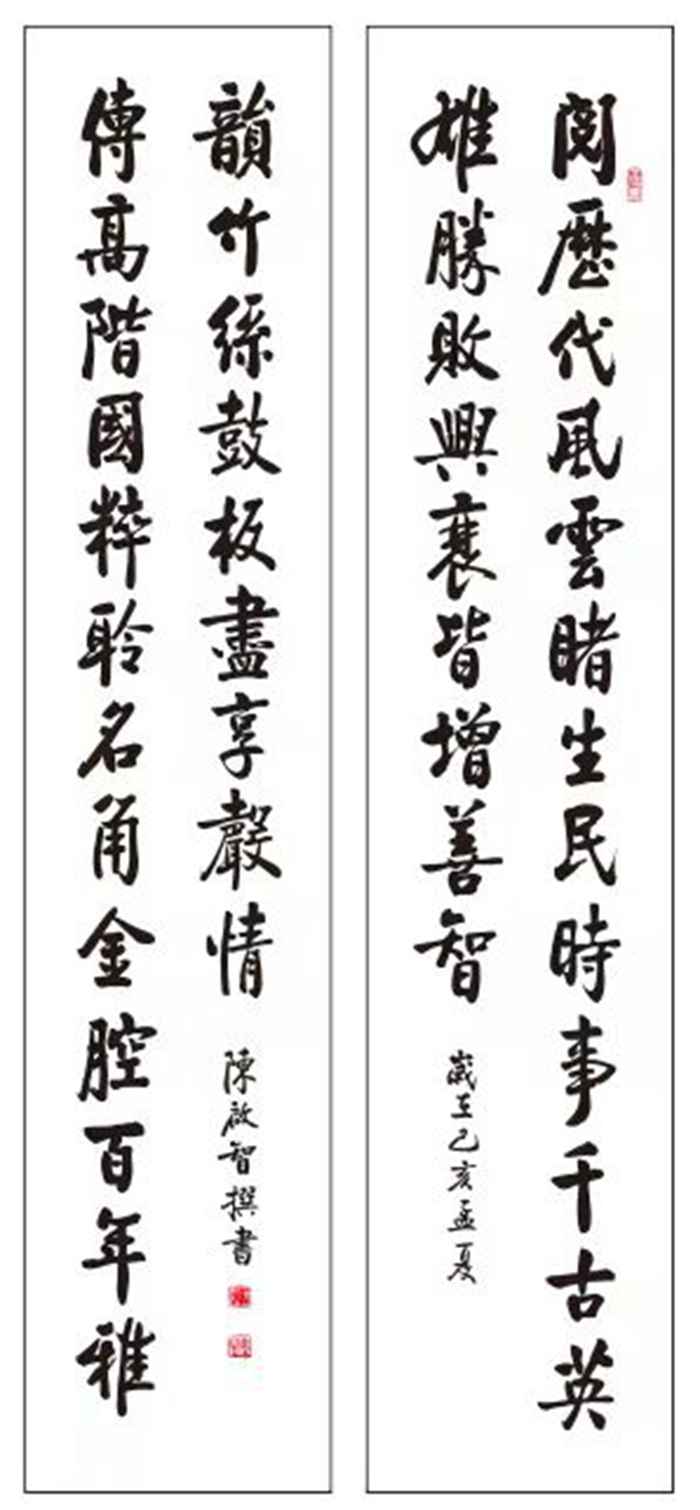 閱歷代風雲睹生民時事千古英
雄勝敗興衰皆增善智
歲在己亥孟夏
傳高階國粹聆名角金腔百年雅
韻竹絲鼓板盡享聲情
陳啟智撰書